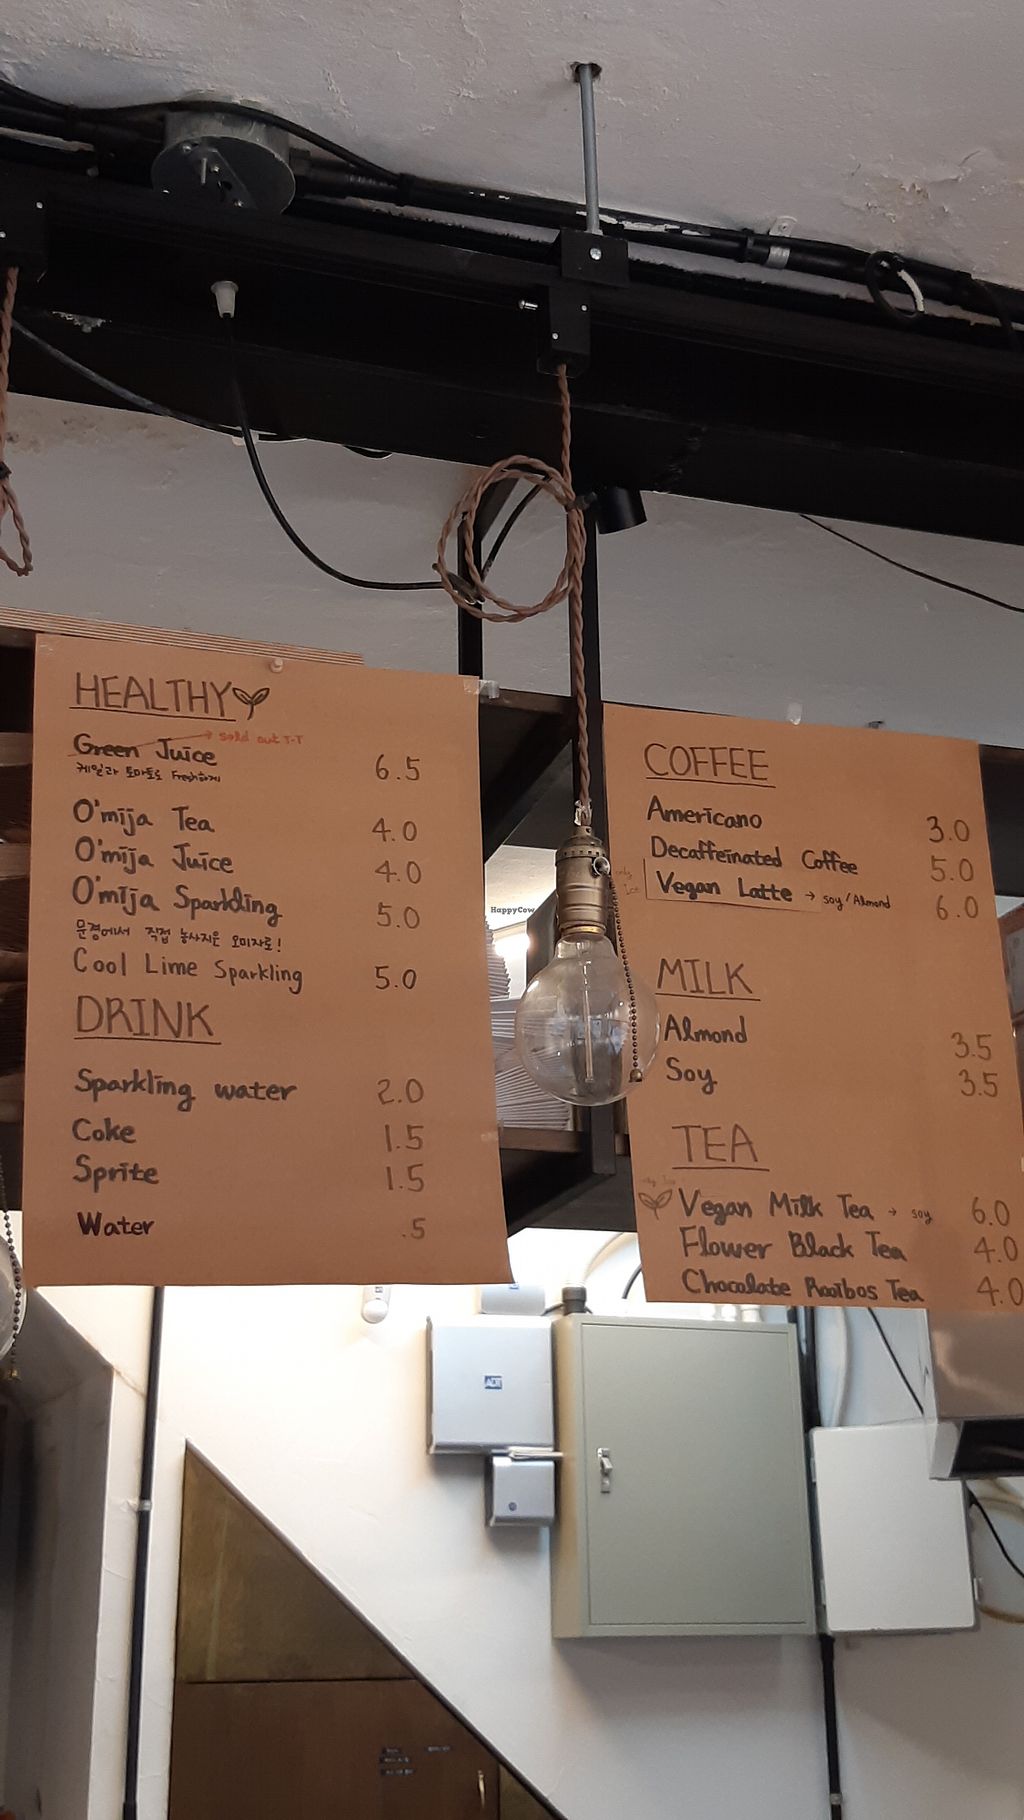 HEALTHY
Green Juice → sold out T-T
케일과 토마토로 Fresh하게 6.5
O'mija Tea 4.0
O'mija Juice 4.0
O'mija Sparkling 5.0
문경에서 직접 농사지은 오미자로!
Cool Lime Sparkling 5.0
DRINK
Sparkling water 2.0
Coke 1.5
Sprite 1.5
Water .5
HappyCow
COFFEE
Americano 3.0
Decaffeinated Coffee 5.0
only
Ice
Vegan Latte → soy/Almond 6.0
MILK
Almond 3.5
Soy 3.5
TEA
Vegan Milk Tea → soy 6.0
Flower Black Tea 4.0
Chocolate Rooibos Tea 4.0
ADT